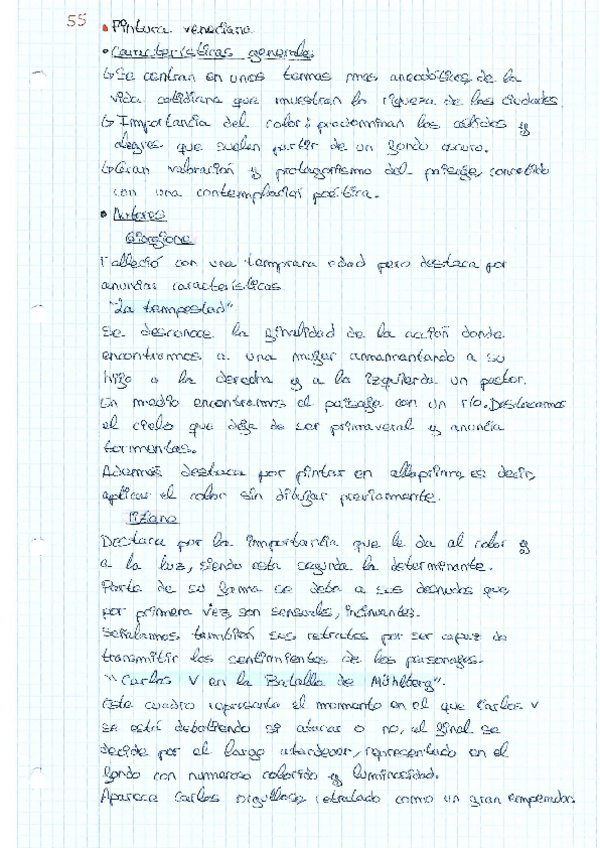 55
• Pintura veneciana
• Características generales
↳ Se centran en unos temas mas anecdóticos de la
vida cotidiana que muestran la riqueza de las ciudades.
↳ Importancia del color; predominan los cálidos y
alegres que suelen partir de un fondo oscuro.
↳ Gran valoración y protagonismo del paisaje convertido
con una contemplación poética.
• Autores
Giorgione
Falleció con una temprana edad pero destaca por
anunciar características
"La tempestad"
Se desconoce la finalidad de la acción donde
encontramos a una mujer amamantando a su
hijo a la derecha y a la izquierda un pastor.
En medio encontramos el paisaje con un río. Destacamos
el cielo que deja de ser primaveral y anuncia
tormentas.
Además destaca por pintar en allaprima, es decir,
aplicar el color sin dibujar previamente.
Tiziano
Destaca por la importancia que le da al color y
a la luz, siendo esta segunda la determinante.
Parte de su fama se debe a sus desnudos que,
por primera vez, son sensuales, incinantes.
Señalamos también sus retratos por ser capaz de
transmitir los sentimientos de los personajes.
"Carlos V en la Batalla de Mühlberg".
Este cuadro representa el momento en el que Carlos V
se está debatiendo si atacar o no, al final se
decide por el largo atardecer, representado en el
fondo con numeroso colorido y luminosidad.
Aparece Carlos orgulloso, retratado como un gran emperador